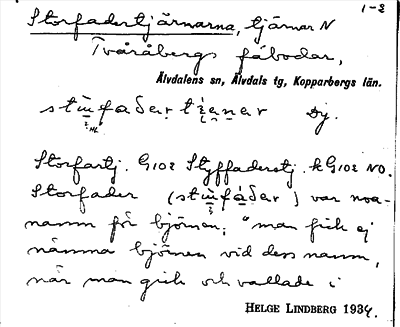 1-2
Storfadertjärnarna, tjärnar N
Tvåråbergs fäbodar,
Älvdalens sn, Älvdals tg, Kopparbergs län.
Dj.
Storfartj. G102 Styffaderstj. k G102 NO.
Storfader ( ) var noa-
namn för björnen; "man fick ej
nämna björnen vid dess namn,
när man gick och vallade i
HELGE LINDBERG 1934.